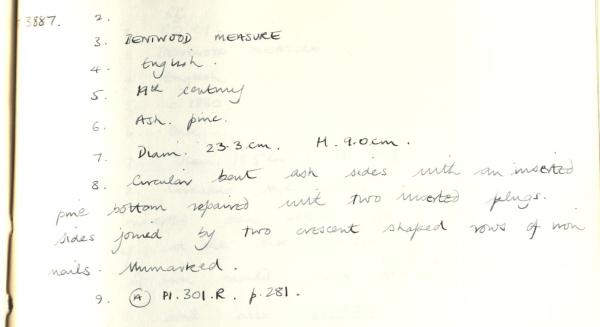 3887. 2.
3. BENTWOOD MEASURE
4. English.
5. 19th century
6. Ash. pine.
7. Diam. 23.3.cm. H. 9.0cm.
8. Circular bent ash sides with an inserted
pine bottom repaired with two inserted plugs.
sides joined by two crescent shaped rows of iron
nails. Unmarked.
9. (A) Pl. 301. R. p. 281.